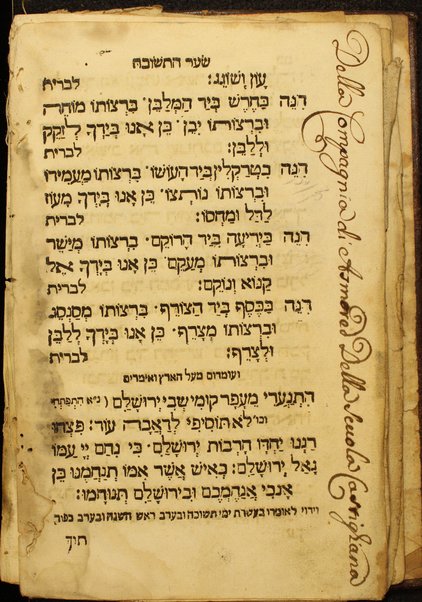 שער התשובה
עון ושוגג: לברית
הנה כחרש ביד המלבן· ברצותו מוחה
וברצותו יבן· כן אנו בידך לזקק
וללבן: לברית
הנה כטרקלין ביד העושו· ברצותו מעמידו
וברצותו נותצו· כן אנו בידך מעוז
לדל ומחסו: לברית
הנה כיריעה ביד הרוקם· ברצותו מיישר
וברצותו מעקם· כן אנו בידך אל
קנוא ונוקם: לברית
הנה ככסף ביד הצורף· ברצותו מסגסג
וברצותו מצרף· כן אנו בידך ללבן
ולצרף: לברית
ועומדים מעל הארץ ואומרים
התנערי מעפר קומי שבי ירושלם (נ״א התפתחי
וכו׳ לא תוסיפי לדאבה עוד: פצחו
רננו יחדו חרבות ירושלם· כי נחם יי עמו
גאל ירושלם: כאיש אשר אמו תנחמנו כן
אנכי אנחמכם ובירושלם תנוחמו:
וידוי לאומרו בעשרת ימי תשובה ובערב ראש השנה ובערב כפור·
תיך
Della Compagnia di Asmored Della Scuola Canigliana